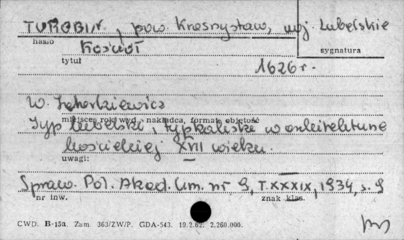 TUROBIN, pow. Krasnystaw, woj. Lubelskie
hasło
Kościół
sygnatura
tytuł
1626 r.
miejsce, rok wyd., nakładca, format, objętość
Typ lubelski, typ kaliski w architekturze
kościelnej XVII wieku.
uwagi:
Spraw. Pol. Akad. Um. nr 9, T. XXXIX, 1934, s. 9
nr inw.
znak klas.
CWD. B-15a. Zam. 363/ZW/P. GDA-543. 19.2.62. 2.260.000.